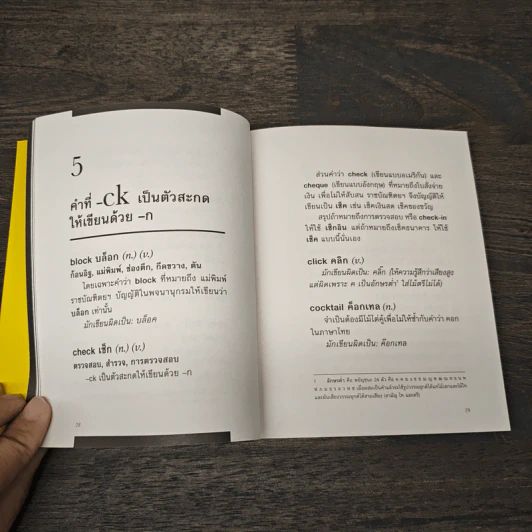 5
คำที่ -ck เป็นตัวสะกด
ให้เขียนด้วย –ก
block บล็อก (n.) (v.)
ก้อนอิฐ, แม่พิมพ์, ช่องตึก, กีดขวาง, ตัน
โดยเฉพาะคำว่า block ที่หมายถึง แม่พิมพ์
ราชบัณฑิตยฯ บัญญัติในพจนานุกรมให้เขียนว่า
บล็อก เท่านั้น
มักเขียนผิดเป็น: บล็อค
check เช็ก (n.) (v.)
ตรวจสอบ, สำรวจ, การตรวจสอบ
-ck เป็นตัวสะกดให้เขียนด้วย –ก
28
ส่วนคำว่า check (เขียนแบบอเมริกัน) และ
cheque (เขียนแบบอังกฤษ) ที่หมายถึงใบสั่งจ่าย
เงิน เพื่อไม่ให้สับสน ราชบัณฑิตยฯ จึงบัญญัติให้
เขียนเป็น เช็ค เช่น เช็คเงินสด เช็คของขวัญ
สรุปถ้าหมายถึงการตรวจสอบ หรือ check-in
ให้ใช้ เช็กอิน แต่ถ้าหมายถึงเช็คธนาคาร ให้ใช้
เช็ค แบบนี้นั่นเอง
click คลิก (v.)
มักเขียนผิดเป็น: คลิ้ก (ให้ความรู้สึกว่าเสียงสูง
แต่ผิดเพราะ ค เป็นอักษรต่ำ¹ ใส่ไม้ตรีไม่ได้)
cocktail ค็อกเทล (n.)
จำเป็นต้องมีไม้ไต่คู้เพื่อไม่ให้ซ้ำกับคำว่า คอก
ในภาษาไทย
มักเขียนผิดเป็น: ค๊อกเทล
1 อักษรต่ำ คือ พยัญชนะ 24 ตัว คือ
29